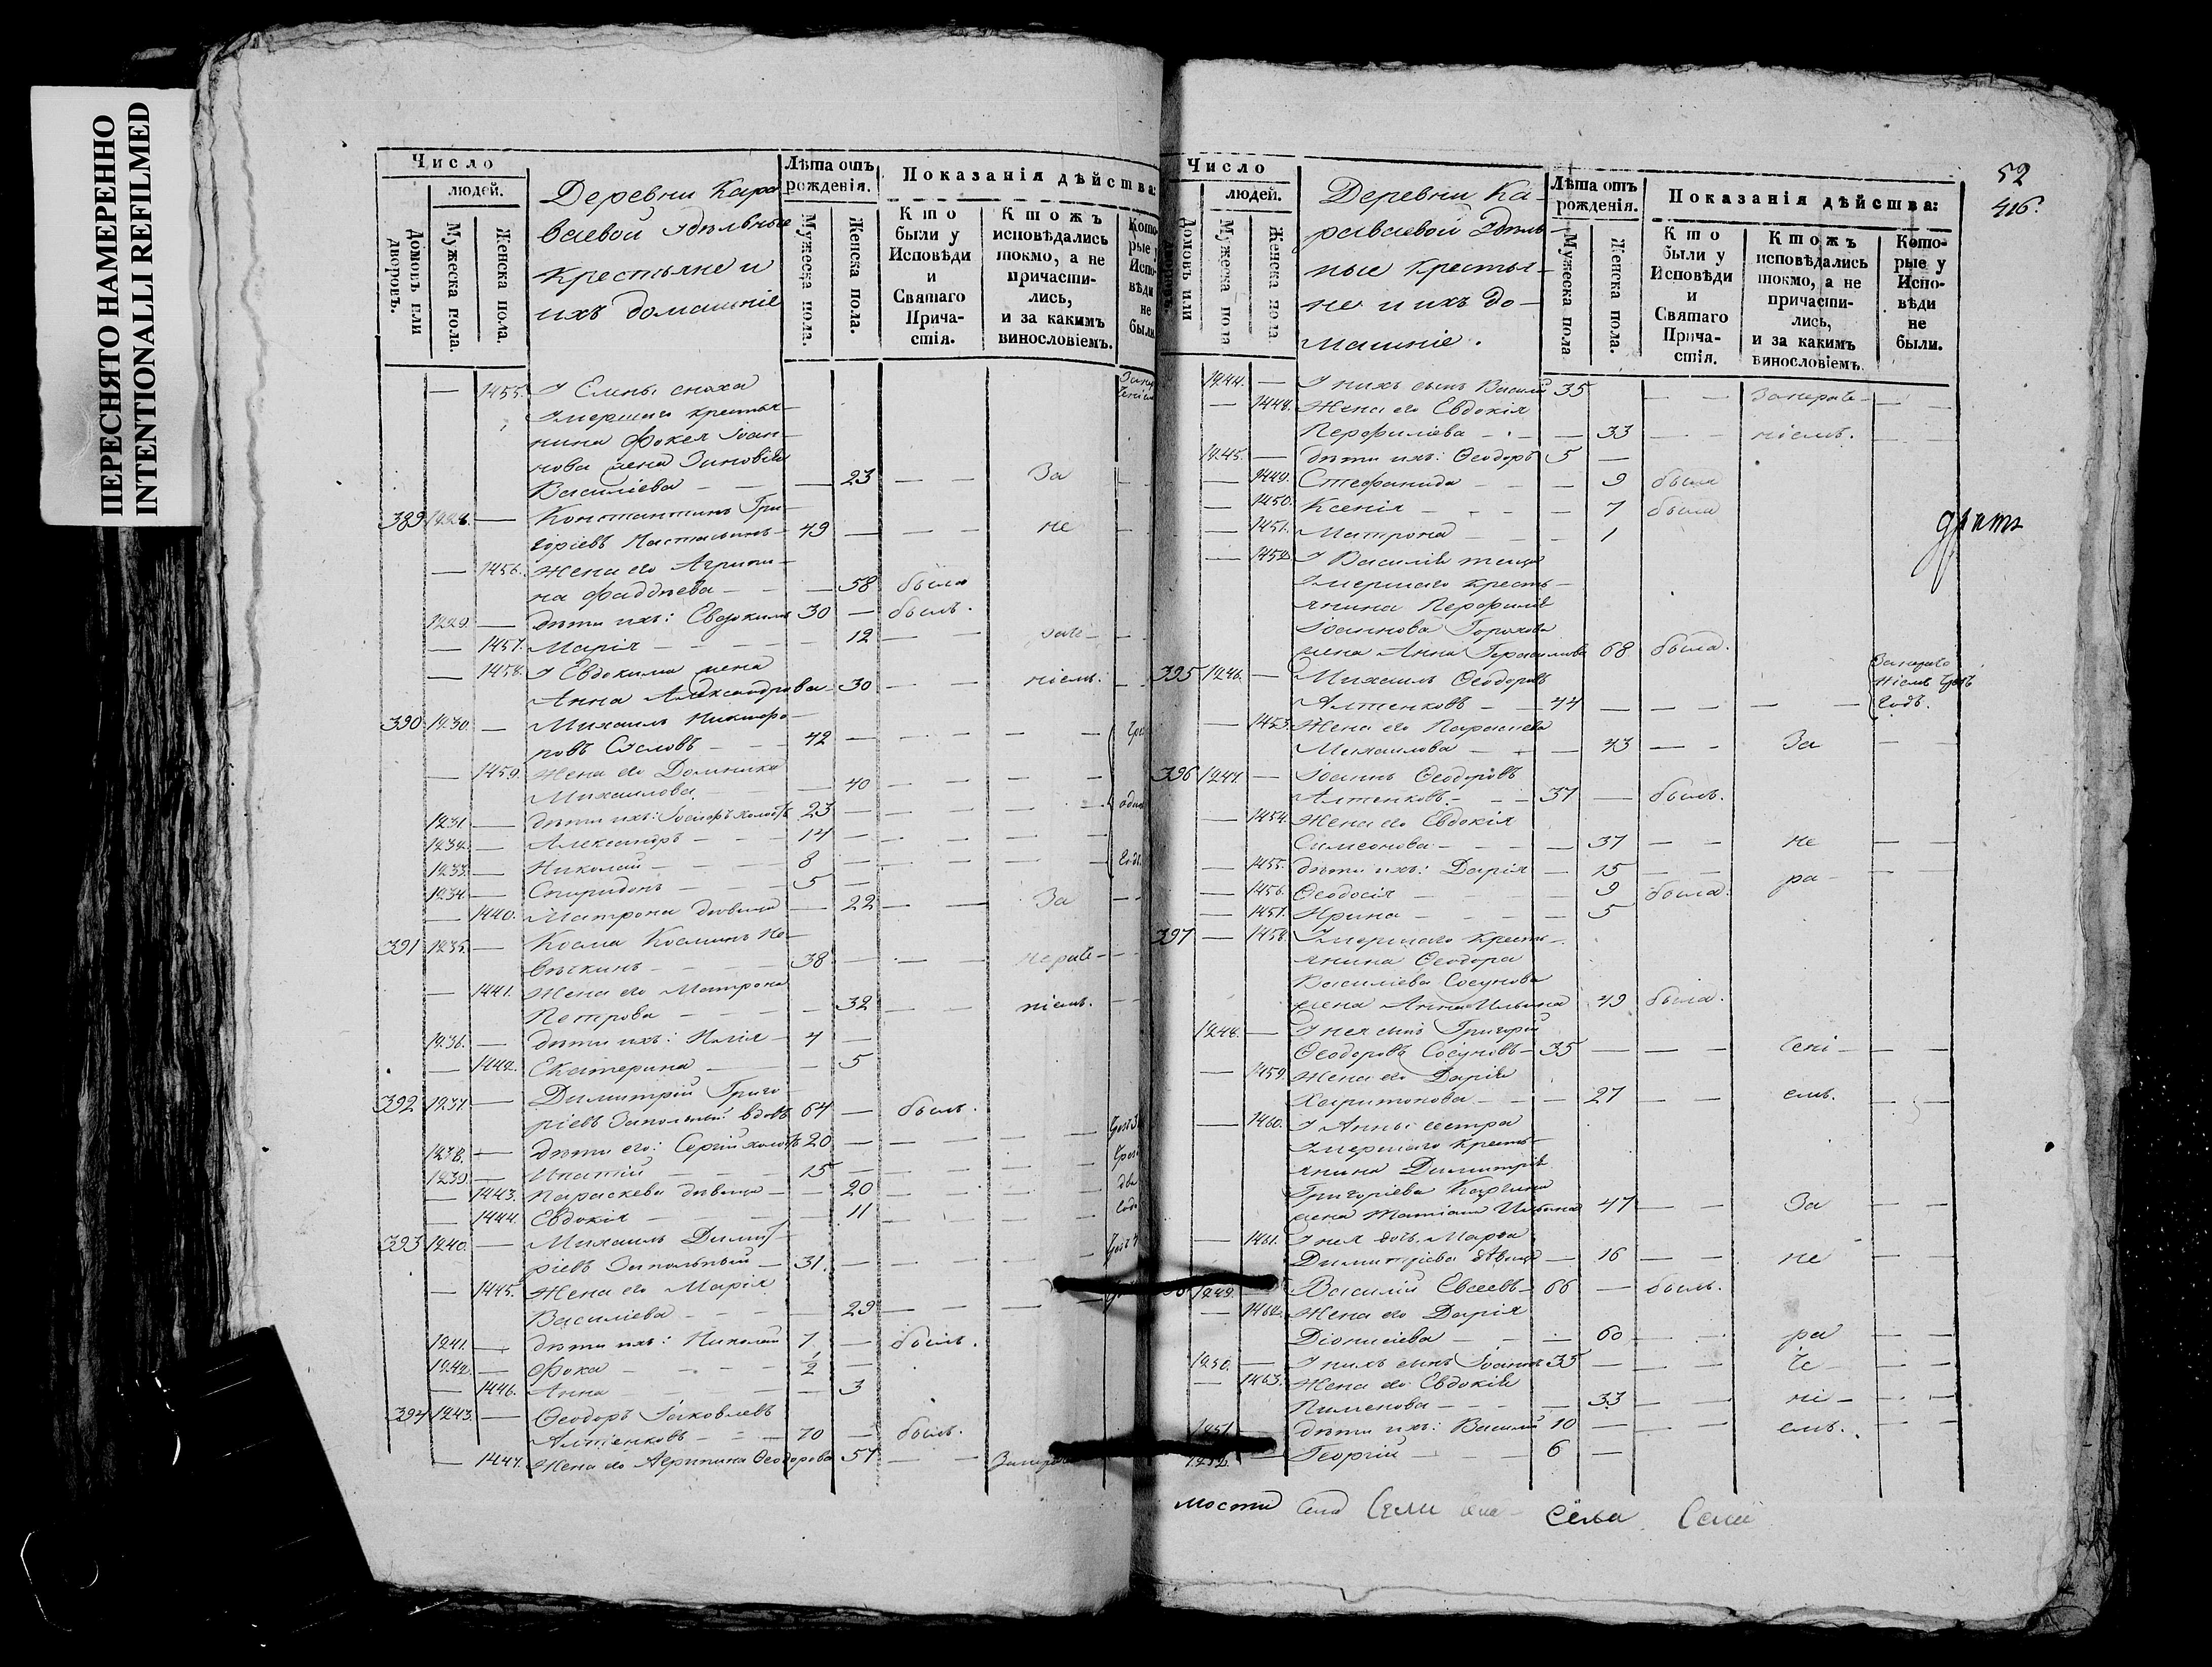 ПЕРЕСНЯТО НАМЕРЕННО
INTENTIONALLI REFILMED
Число
людей.
Домовъ или дворовъ.
Мужеска пола.
Женска пола.
Деревни Кара
ваевой Удѣльные
Крестьяне и
ихъ домашніе
Лѣта отъ рожденія.
Мужеска пола.
Женска пола.
Показанія дѣйства:
Кто были у Исповѣди и Святаго Прича- стія.
Ктожъ исповѣдались токмо, а не причасти- лись, и за какимъ винословіемъ.
Кото- рые у Испо- вѣди не были.
— 1455. У Елены сноха
Умершаго крестья-
нина Фокея Іоан-
нова жена Зиновія
Васильева — — 23 — — За
389 1228. — Константинъ Гри-
горіевъ — 49 — — — не
— 1456. Жена его Агрипи-
на Фаддѣева — — 58 была
1229. — дѣти ихъ: Евдокимъ 30 — былъ.
— 1457. Марія — — 12 — — раче-
— 1458. У Евдокима жена
Анна Александрова — 30 — — ніемъ.
390 1230. — Михаилъ Никифо-
ровъ — — 42 — — — —
— 1459. Жена его Домника
Михаилова — — 40 — — — —
1231. — дѣти ихъ: холостъ 23 — — — один
1232. — Александръ — — 14 — — — —
1233. — Николай — — 8 — — — — годъ.
1234. — Спиридонъ — — 5 —
— 1440. Матрона дѣвица — 22 — — За — —
391 1235. — Косма Косминъ Не-
— — 38 — — — нераче-
— 1441. Жена его Матрона
Петрова — — — 32 — — ніемъ. — —
1236. — дѣти ихъ: Илія — 7 —
— 1442. Екатерина — — — 5
392 1237. — Димитрій Григо
ріевъ Запольный вдовъ 64 — былъ.
1238. — дѣти его: Сергій холостъ 20 — — — —
1239. — Ипатій — — 15 — — — —
— 1443. Параскева дѣвица — — 20 — — — — два
— 1444. Евдокія — — — 11 — — — — года
393 1240. — Михаилъ Димит-
ріевъ Запольный — 31. — — — —
— 1445. Жена его Марія
Васильева — — — 29 — — — —
1241. — дѣти ихъ: Николай 7 — былъ.
1242. — Фока — — ½ —
— 1446. Анна — — — 3
394 1243. — Ѳеодоръ Іаковлевъ
Алтенковъ — — 70 — былъ.
— 1447. Жена его Агрипина Ѳеодорова 57 — —
52
416.
Число
людей.
Домовъ или дворовъ.
Мужеска пола
Женска пола.
Деревни Ка-
раваевой Удѣль-
ные крестья-
не и ихъ до-
машніе.
Лѣта отъ рожденія.
Мужеска пола
Женска пола.
Показанія дѣйства:
Кто были у Исповѣди и Святаго Прича- стія.
Ктожъ исповѣдались токмо, а не причасти- лись, и за какимъ винословіемъ.
Кото- рые у Испо- вѣди не были.
1244. — У нихъ сынъ Василій 35 — — Занераче- — —
— 1448. Жена его Евдокія
Перфиліева — — — 33 — — ніемъ. — —
1245. — дѣти ихъ: Ѳеодоръ 5 —
— 1449. Стефанида — — — 9 была
— 1450. Ксенія — — — 7 была
— 1451. Матрона — — — 1
— 1452. У Василія теща
Умершаго кресть-
янина Перфилія
Іоаннова
жена Анна Герасимова 68 была.
395 1246. — Михаилъ Ѳеодоровъ
Алтенковъ — — 44 — — — — —
Занераче ніемъ годъ.
— 1453. Жена его Параскева
Михаилова — — — 43 — — За — —
396 1247. — Іоаннъ Ѳеодоровъ
Алтенковъ — — 37 — былъ.
— 1454. Жена его Евдокія
Симеонова — — — 37 — — не — —
— 1455. дѣти ихъ: Дарія — 15 — — ра- —
— 1456. Ѳеодосія — — — 9 была.
— 1457. Ирина — — — 5
397 — 1458. Умершаго кресть-
янина Ѳеодора
Васильева Сосунова
жена Анна Ильина 49 была.
1248. — У нея сынъ Григорій
Ѳеодоровъ Сосуновъ — 35 — — — чені- — —
— 1459. Жена его Дарія
Харитонова — — — 27 — — емъ. — —
— 1460. У Анны сестра
Умершаго кресть-
янина Димитрія
Григоріева
жена Ильина 47 — — За — —
— 1461. У нея дочь Марѳа
Димитріева дѣвица — 16 — — не — —
1249. — Василій Евсеевъ — 66 — былъ.
— 1462. Жена его Дарія
Діонисіева — — — 60 — — ра — —
1250. — У нихъ сынъ Іоаннъ 35 — — че — — —
— 1463. Жена его Евдокія
Пименова — — — 33 — — ні- — —
1251. — дѣти ихъ: Василій 10 — — — емъ. — —
1252. — Георгій — — 6 —
мости села